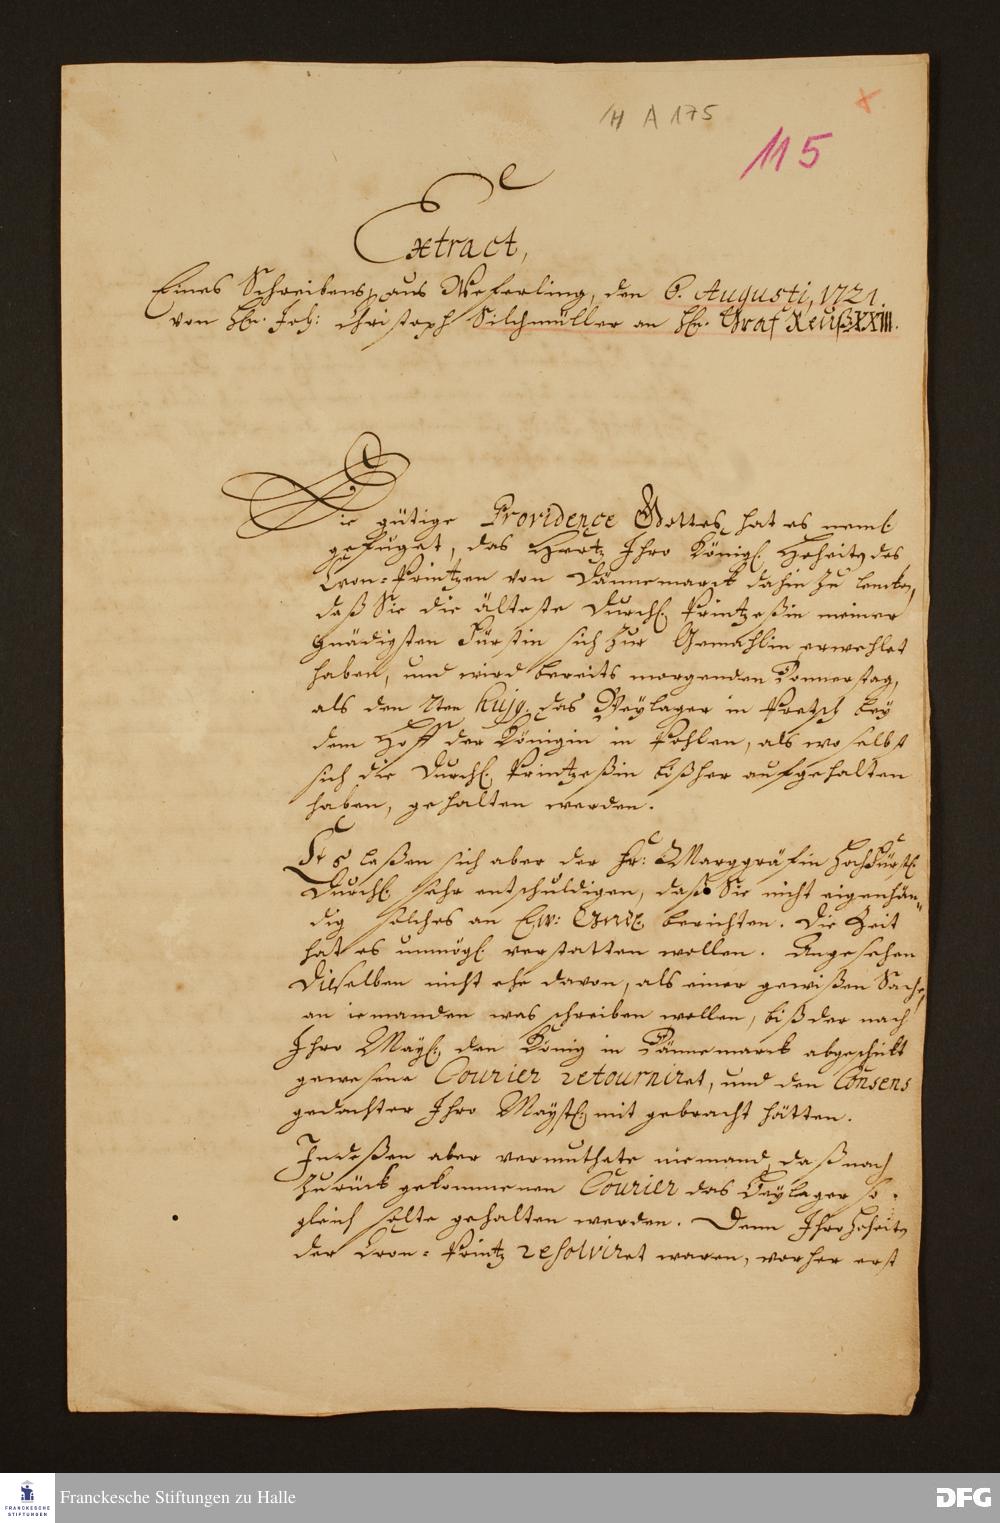 H A 175
115
Extract,
Eines Schreibens, aus Weferling, den 6. Augusti, 1721.
von Hr. Joh: Christoph Silchmüller an Hr. Graf Reuß XXIII.
Die gütige Providence Gottes, hat es neml.
gefüget, das Hertz Ihro Königl. Hoheit des
Cron-Printzen von Dännemarck dahin zu lencken,
daß Sie die älteste Durchl. Printzeßin meiner
gnädigsten Fürstin sich zur Gemahlin erwehlet
haben, und wird bereits morgenden Donnerstag,
als den 7ten hujq. das Beylager in Pretsch bey
dem Hoff der Königin in Pohlen, als woselbst
sich die Durchl. Printzeßin bißher aufgehalten
haben, gehalten werden.
Es laßen sich aber der Fr: Marggräfin Hochfürstl.
Durchl. sehr entschuldigen, daß Sie nicht eigenhän-
dig solches an Ew: berichten. Die Zeit
hat es unmögl. verstatten wollen. Angesehen
Dieselben nicht ehe davon, als einer gewißen Sache,
an iemanden was schreiben wollen, biß der nach
Ihro Mayt. den König in Dännemarck abgeschickt
gewesene Courier retourniret, und den Consens
gedachter Ihro Mayst. mit gebracht hätten.
Indeßen aber vermuthete niemand, daß nach
zurück gekommenen Courier das Beylager so-
gleich solte gehalten werden. Denn Ihro Hoheit
der Cron-Printz resolviret waren, vorher erst
Franckesche Stiftungen zu Halle
FRANCKESCHE
STIFTUNGEN
DFG